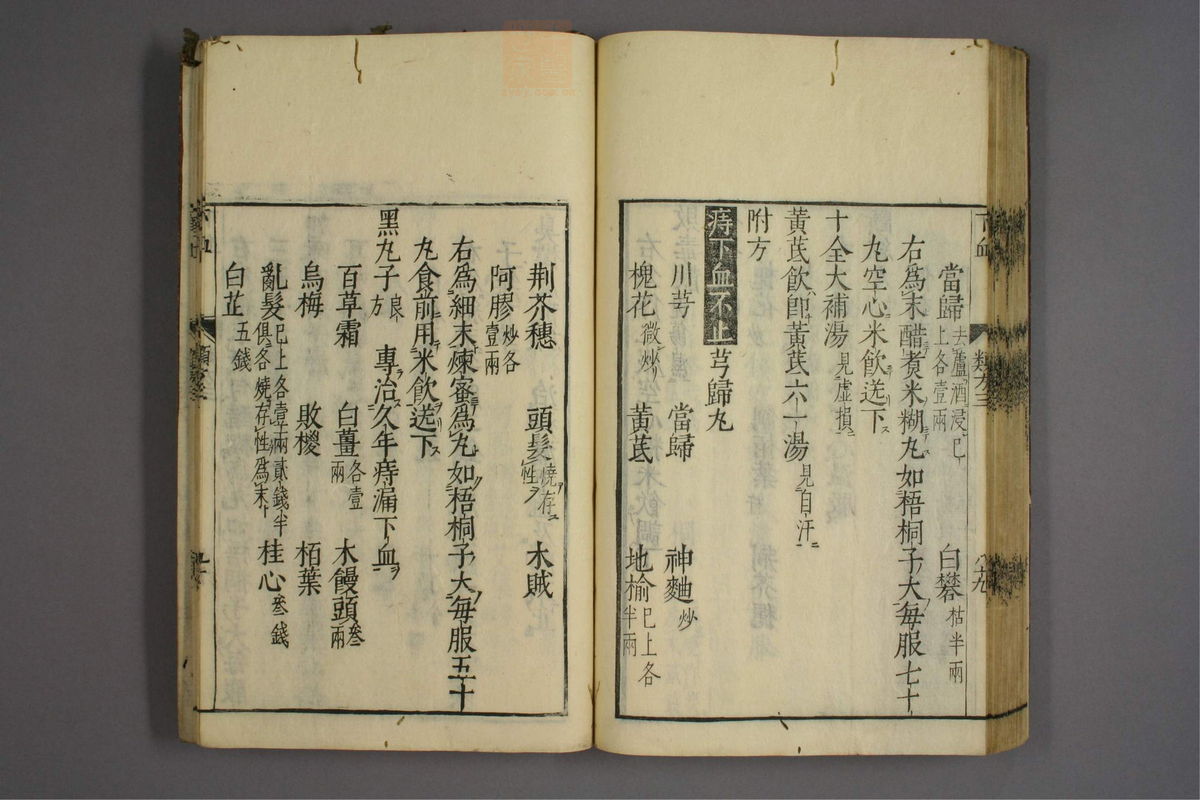 當歸去蘆酒浸已上各壹兩 白礬枯半兩
右爲末醋煮米糊丸如梧桐子大每服七十
丸空心米飮送下
十全大補湯見虚損
黃芪飮卽黃芪六一湯見自汗
附方
痔下血不止 芎歸丸
川芎 當歸 神麯炒
槐花微炒 黃芪 地榆已上各半兩
荆芥穗 頭髮燒存性 木賊
阿膠炒各壹兩
右爲細末煉蜜爲丸如梧桐子大每服五十
丸食前用米飮送下
黑丸子良方 專治久年痔漏下血
百草霜 白薑各壹兩 木饅頭叁兩
烏梅 敗椶 栢葉
亂髮已上各壹兩貳錢半俱各燒存性爲末 桂心叁錢
白芷五錢
下血